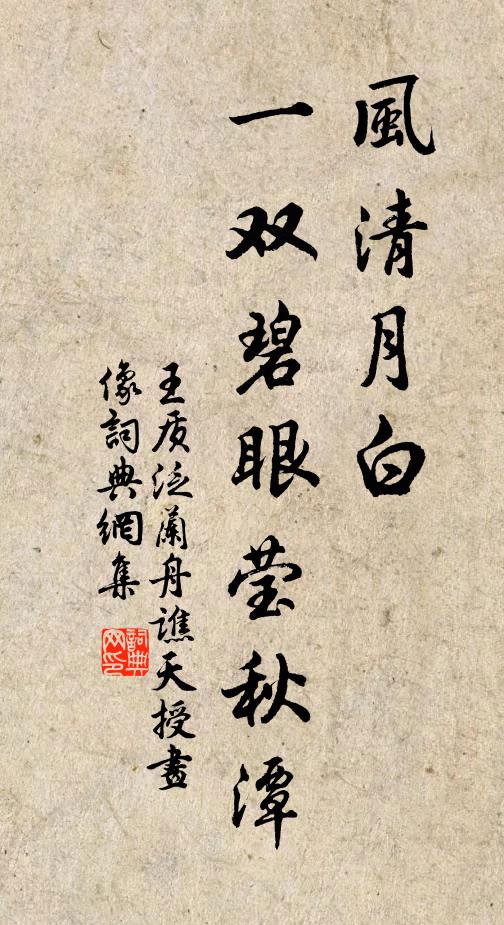 風清月白
一双碧眼莹秋潭
王质泛蘭舟譙天授畫
像詞典網集
詞典
网印